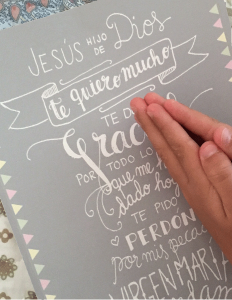 JESÚS HIJO DE Dios
te quiero mucho
TE D
Grac
POR TODO LO
que me h
dado ho
TE PIDO
PERDÓN
por mis peca
VIRGEN MARÍ